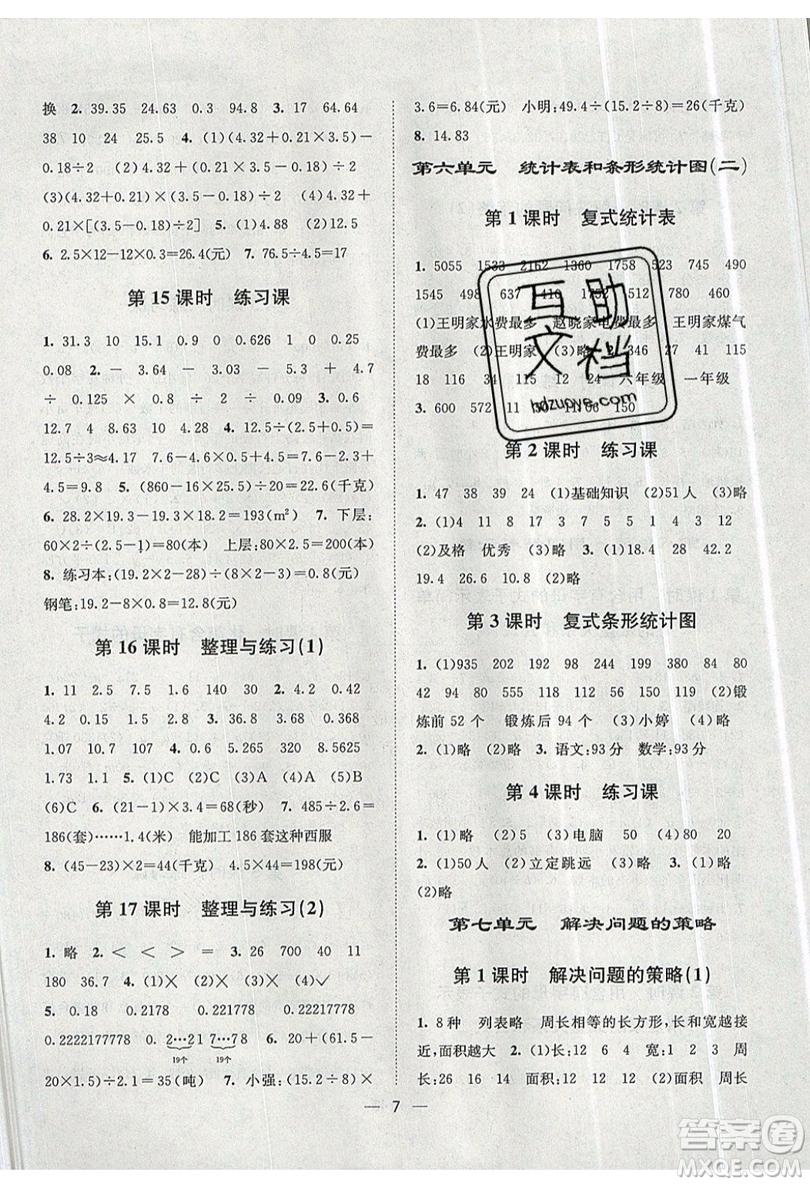 换 2. 39.35 24.63 0.3 94.8 3. 17 64.64
38 10 24 25.5 4. (1)(4.32+0.21×3.5)-
0.18÷2 (2)4.32+0.21×(3.5-0.18)÷2
(3)(4.32+0.21)×(3.5-0.18)÷2 (4)4.32+
0.21×[(3.5-0.18)÷2] 5. (1)80 (2)12.9
6. 2.5×12-12×0.3=26.4(元) 7. 76.5÷4.5=17
第 15 课时 练习课
1. 31.3 10 15.1 0.9 0 0.626 1 0.25
0.08 2. - 3.64 - 3.64 - 5 + 4.7 ÷
0.15 ÷ 0.25 × 0.8 × 0.8 3. 0.6
12.7 4 2.8 10 4. 12.5÷(2.5+0.5)+
10.45÷3≈4.17 7.6-0.6×(12.5÷2.5)=4.6
4.5÷(12.5÷2.5)=0.9 (12.5÷2.5)+0.1+
4.5=9.6 5. (860-16×25)÷20=23(千克)
6. 28.2×19.3-19.3×18.2=193(m²) 7. 下层:
60×2÷(2.5-1)=80(本) 上层:80×2.5=200(本)
8. 练习本:(19.2×2-28)÷(8×2-3)=0.8(元)
钢笔:19.2-8×0.8=12.8(元)
第 16 课时 整理与练习(1)
1. 11 2.5 7.5 1.6 140 30 4.2 0.42
4.2 0.15 0.175 2. 4 3. 36.8 3.68 0.368
1.07 10.7 107 4. 9.25 0.24 20 8.5625
1.73 11.1 5. (1)C (2)C (3)A (4)A (5)B
(6)C 6. (21-1)×3.4=68(秒) 7. 485÷2.6=
186(套)……1.4(米) 能加工 186 套这种西服
8. (45-23)×2=44(千克) 4.5×44=198(元)
第 17 课时 整理与练习(2)
1. 略 2. < < > = 3. 26 700 40 11
180 36.7 4. (1)× (2)× (3)× (4)✓
5. 0.18 0.2178 0.221778 0.22217778
0.2222177778 0.2…21 7…78 6. 20+(61.5-
19个 19个
20×1.5)÷1.5=41(吨) 7. 小强:(15.2÷8)×
3.6=6.84(元) 小明:49.4÷(15.2÷8)=26(千克)
8. 14.83
第六单元 统计表和条形统计图(二)
第 1 课时 复式统计表
1. 5055 1535 2112 1360 48 75 38 490
1545 498 637 400 32 45 820 2.
(1)王明家水费最多 赵晓家电费最多 王明家煤气
费最多 (2)王明家 115
118 116 113 112 124 六年级 一年级
3. 600 572 150
第 2 课时 练习课
1. 47 38 39 24 (1)基础知识 (2)51人 (3)略
2. (1)4 11 8 17 3 7 5 5 1 4 1
(2)及格 优秀 3. (1)18.4 28.8 41.2
19.4 26.6 10.8 (2)略
第 3 课时 复式条形统计图
1. (1)935 202 232 190 311 74 80
22 94 18 60 52 24 42 (2)锻
炼前 52 个 锻炼后 94 个 (3)小婷 (4)略
2. (1)略 (2)略 3. 语文:93分 数学:93分
第 4 课时 练习课
1. (1)略 (2)5 (3)电脑 50 (4)80 20
2. (1)50人 (2)立定跳远 (3)略 3. (1)略
(2)略
第七单元 解决问题的策略
第 1 课时 解决问题的策略(1)
1. 8种 列表略 周长相等的长方形,长和宽越接
近,面积越大 2. (1)长:12 6 4 宽:1 2 3 周
长:26 16 14 面积:12 (2)面积 周长 周长
7
互助文档
hdzuoye.com
答案圈
MXQE.COM